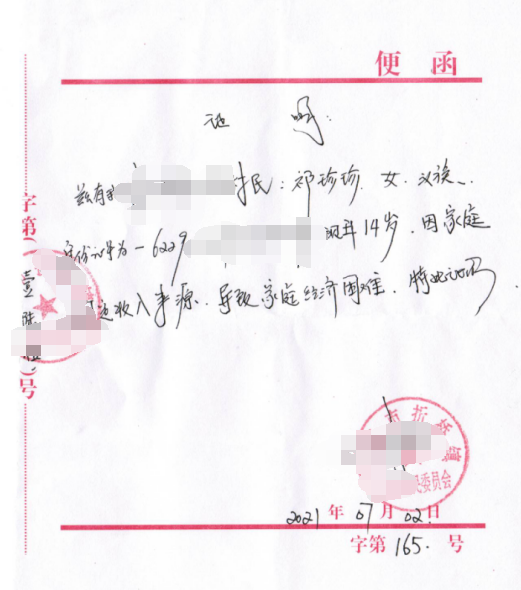 便 函
证 明
兹有我 村民：祁珍珍，女，汉族，
身份证号为-6229 现年14岁，因家庭
无收入来源，导致家庭经济困难，特此证明.
折桥镇
民委员会
2021 年 07 月 02 日
字第 165. 号
字第（壹陆伍）号